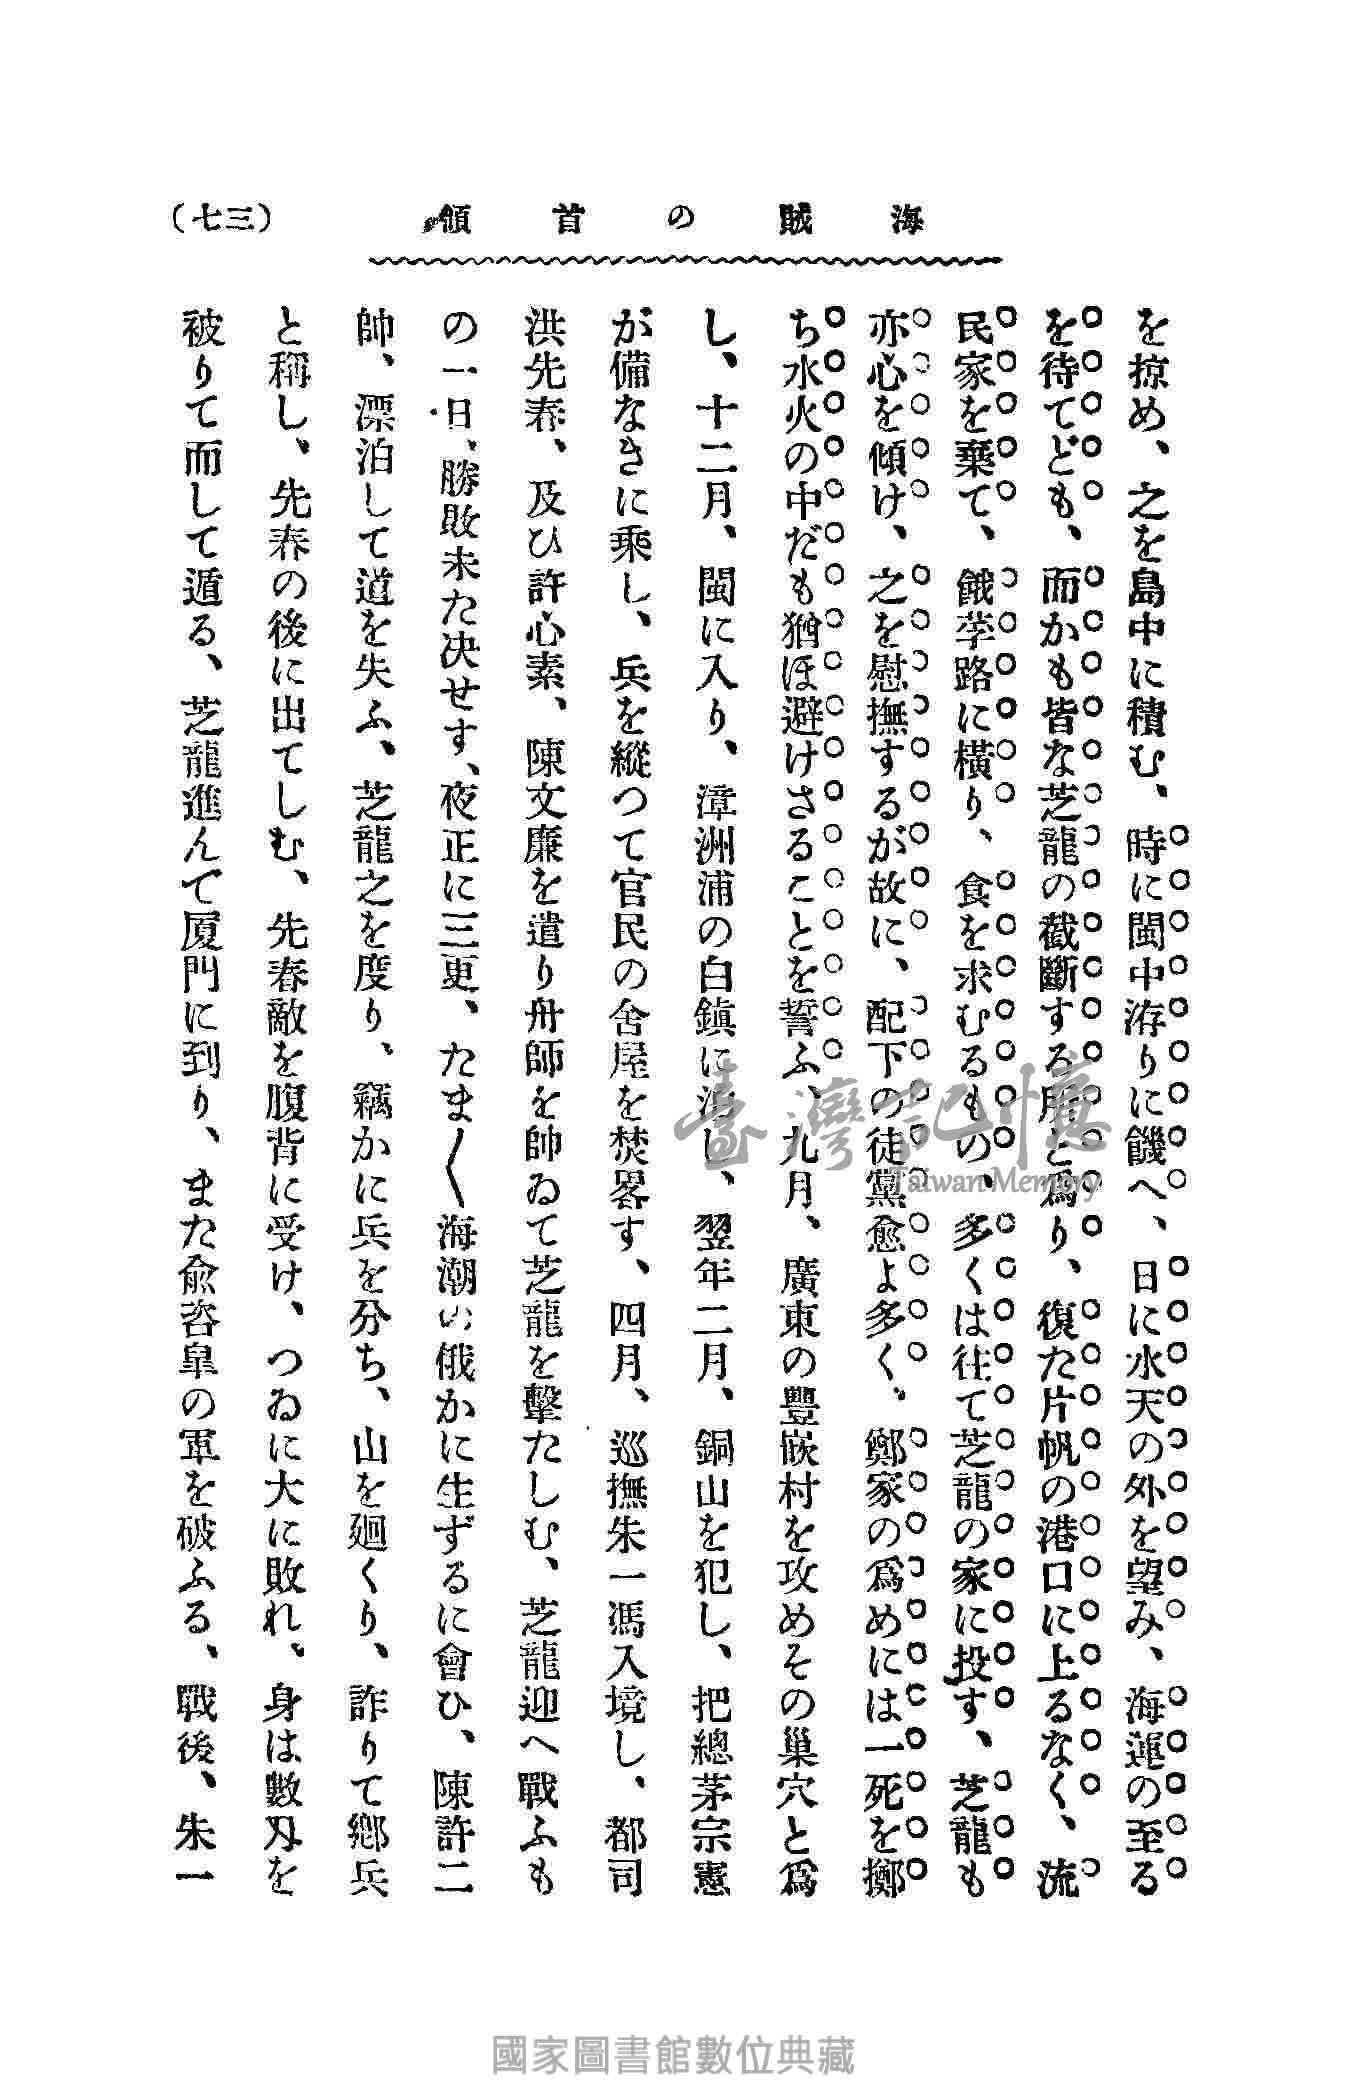 海賊の首領
(三七)
を掠め、之を島中に積む、時に閩中洊りに饑へ、日に水天の外を望み、海運の至る
を待てども、而かも皆な芝龍の截斷する所と爲り、復た片帆の港口に上るなく、流
民家を棄て、餓莩路に橫り、食を求むるもの、多くは往て芝龍の家に投す、芝龍も
亦心を傾け、之を慰撫するが故に、配下の徒黨愈よ多く、鄭家の爲めには一死を擲
ち水火の中だも猶ほ避けさることを誓ふ、九月、廣東の豐嵌村を攻めその巢穴と爲
し、十二月、閩に入り、漳洲浦の白鎮に泊し、翌年二月、銅山を犯し、把總茅宗憲
が備なきに乘し、兵を縱つて官民の舍屋を焚畧す、四月、巡撫朱一馮入境し、都司
洪先春、及ひ許心素、陳文廉を遣り舟師を帥ゐて芝龍を擊たしむ、芝龍迎へ戰ふも
の一日、勝敗未た决せす、夜正に三更、たま〱海潮の俄かに生ずるに會ひ、陳許二
帥、漂泊して道を失ふ、芝龍之を度り、竊かに兵を分ち、山を廻くり、詐りて鄕兵
と稱し、先春の後に出てしむ、先春敵を腹背に受け、つゐに大に敗れ、身は數刄を
被りて而して遁る、芝龍進んで厦門に到り、また兪咨皐の軍を破ふる、戰後、朱一
臺灣記憶
Taiwan Memory
國家圖書館數位典藏